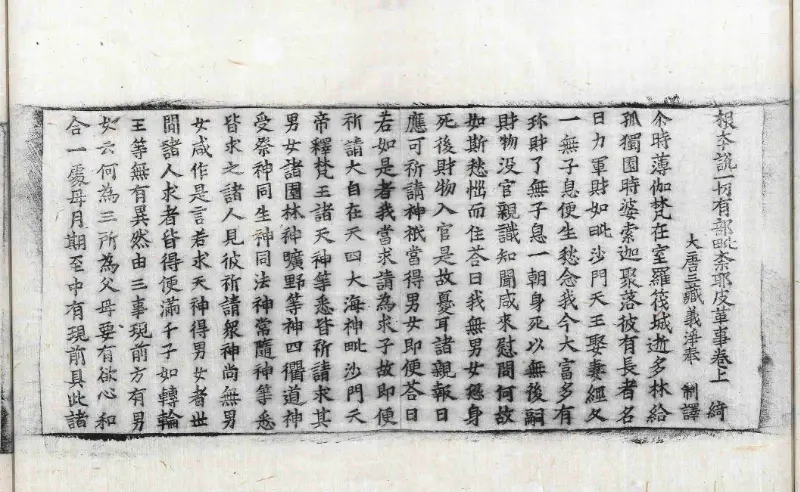 根本說一切有部毗奈耶皮革事卷上 綺
大唐三藏義淨奉 制譯
尒時薄伽梵在室羅筏城逝多林給
孤獨園時婆索迦聚落彼有長者名
日力軍財如毗沙門天王娶妻經久
一無子息便生愁念我今大富多有
珎財了無子息一朝身死以無後嗣
財物没官親識知聞咸來慰問何故
如斯愁惱而住荅曰我無男女恐身
死後財物入官是故憂耳諸親報曰
應可祈請神祇當得男女即便荅曰
若如是者我當求請為求子故即便
祈請大自在天四大海神毗沙門天
帝釋梵王諸天神等悉皆祈請求其
男女諸園林神曠野等神四衢道神
受祭神同生神同法神當隨神等悉
皆求之諸人見彼祈請衆神尚無男
女咸作是言若求天神得男女者世
間諸人求者皆得便滿千子如轉輪
王等無有異然由三事現前方有男
女云何為三所為父母要有欲心和
合一處母月期至中有現前具此諸